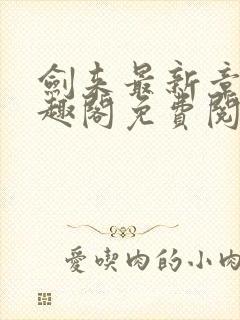 劍来最新章
趣閣免費閱
愛喫肉的小肉